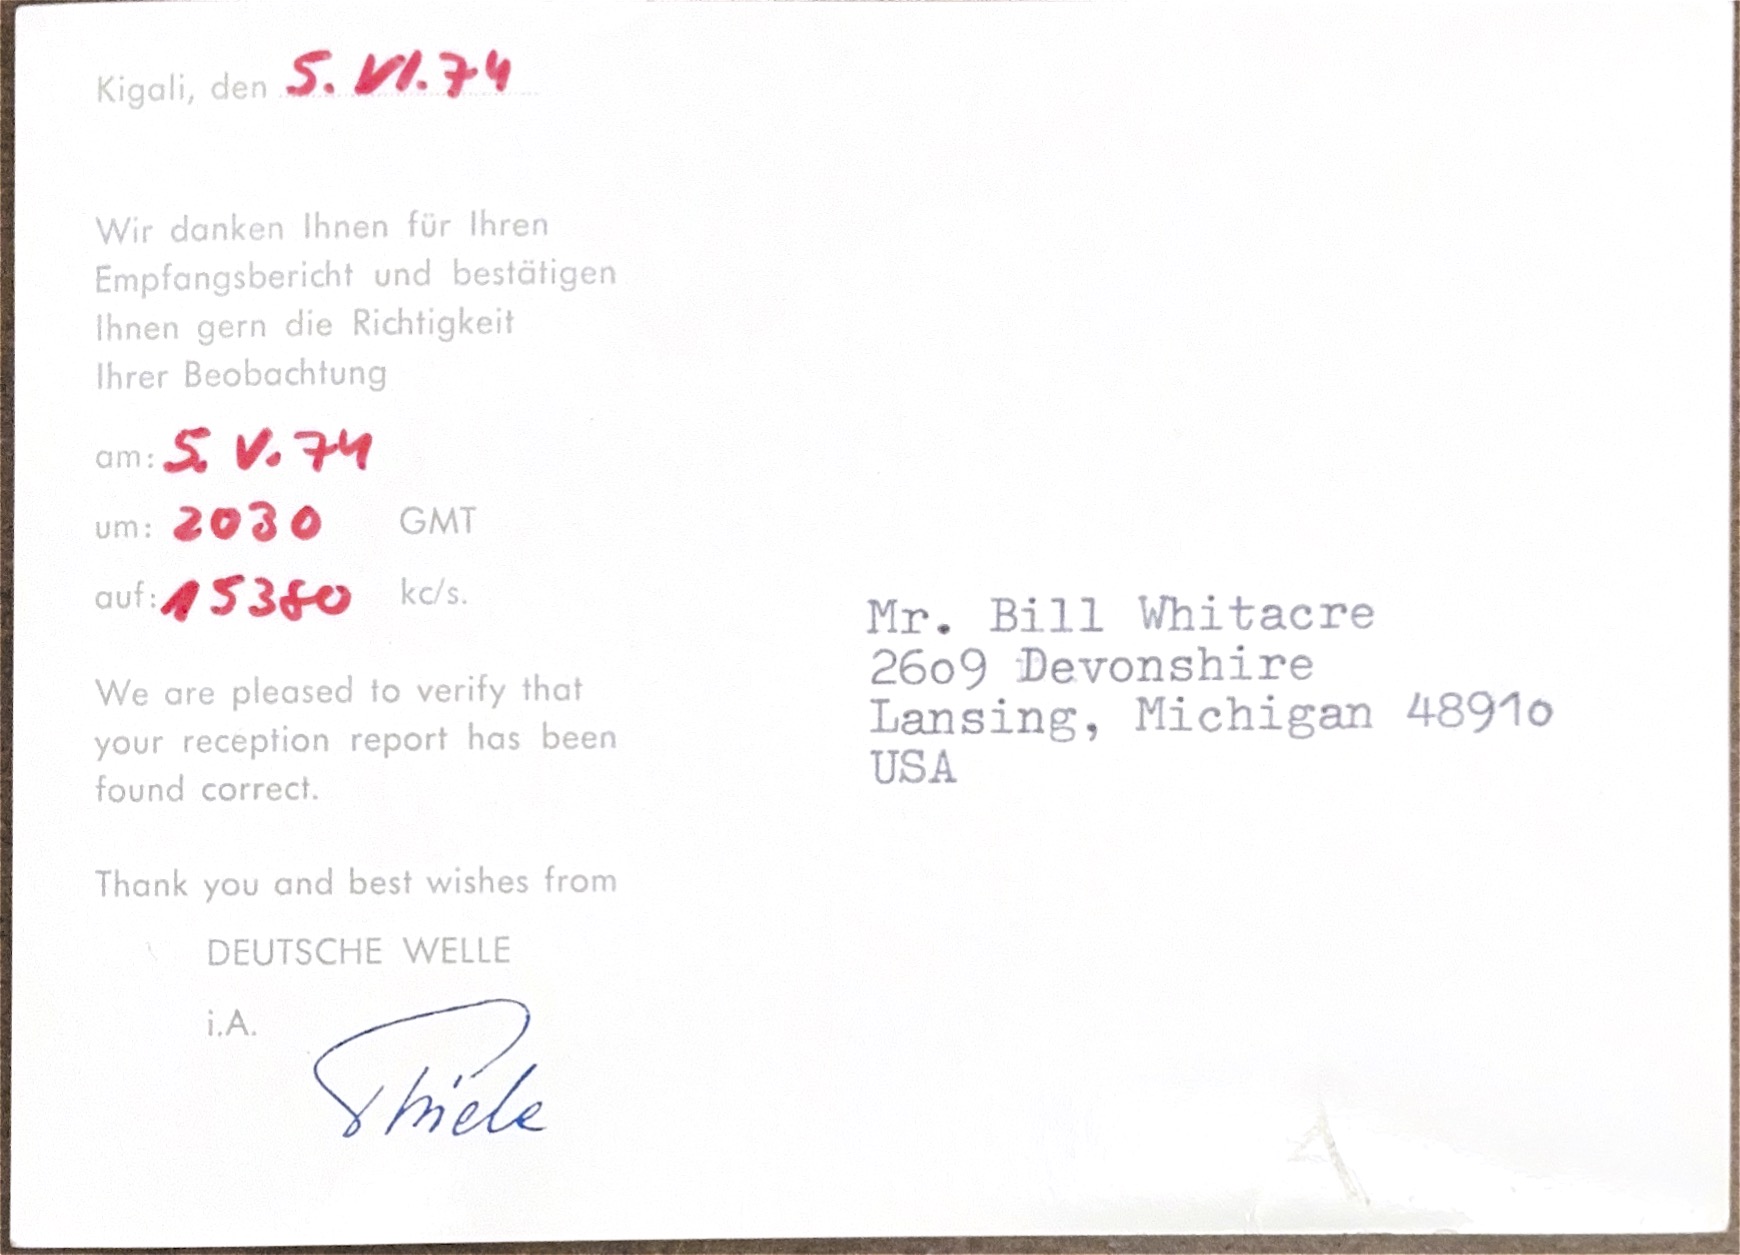 Kigali, den 5. VI. 74
Wir danken Ihnen für Ihren
Empfangsbericht und bestätigen
Ihnen gern die Richtigkeit
Ihrer Beobachtung
am: 5. V. 74
um: 2030 GMT
auf: 15380 kc/s.
We are pleased to verify that
your reception report has been
found correct.
Thank you and best wishes from
DEUTSCHE WELLE
i.A.
Thiele
Mr. Bill Whitacre
2609 Devonshire
Lansing, Michigan 48910
USA